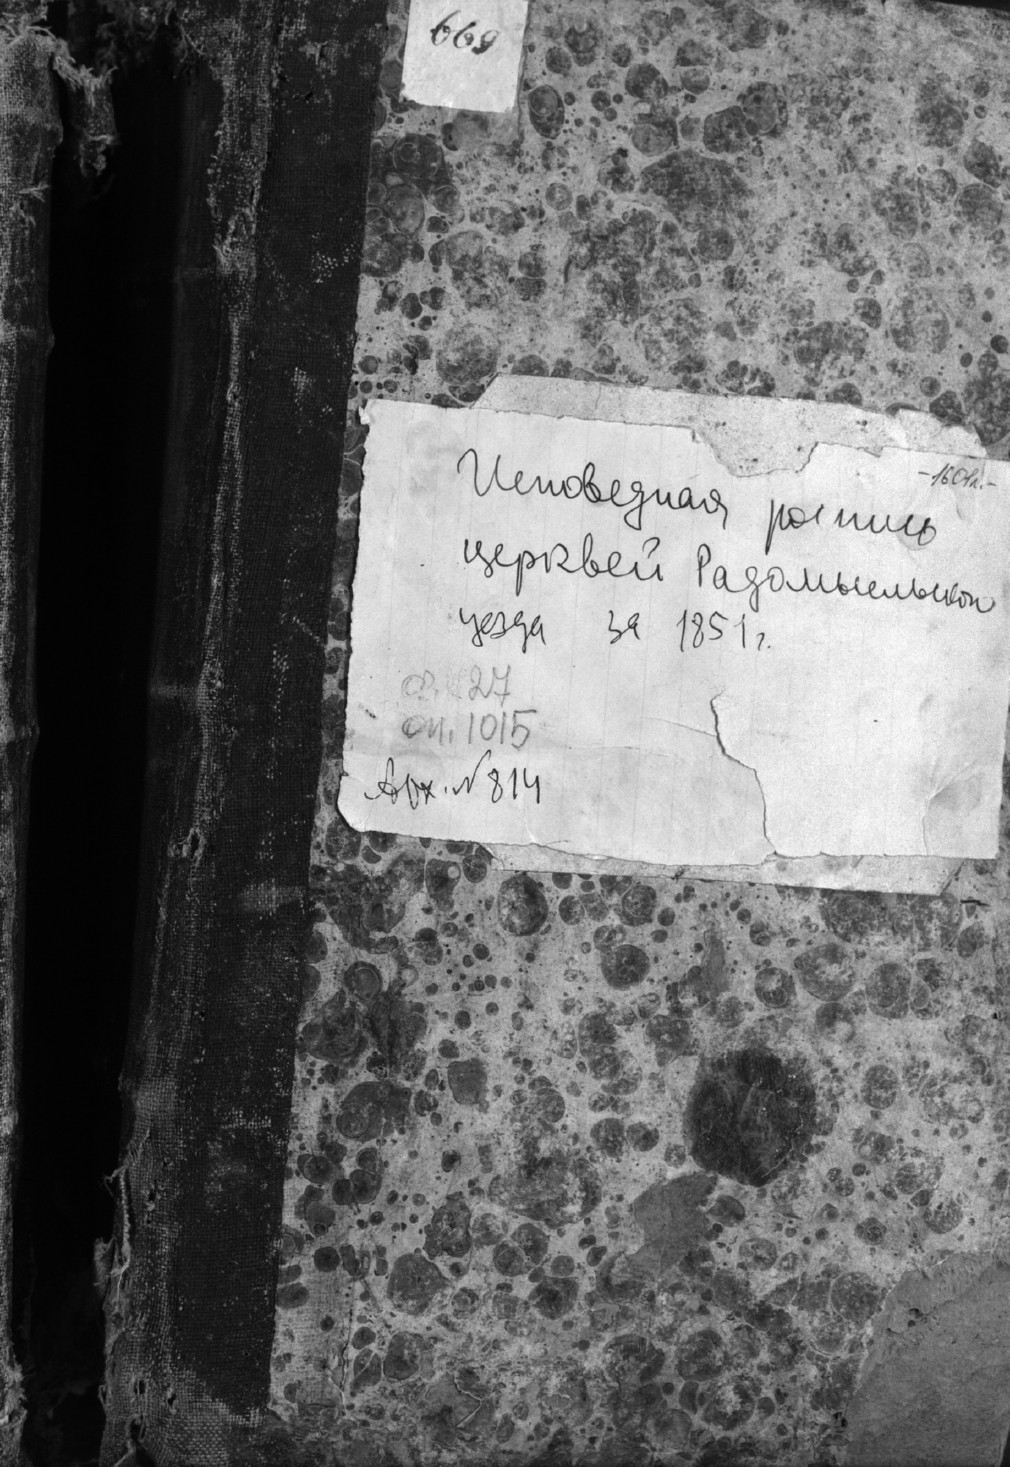 669
-1601л.-
Исповедная роспись
церквей Радомысльского
уезда за 1851 г.
ф. 127
оп. 1015
Арх. № 814